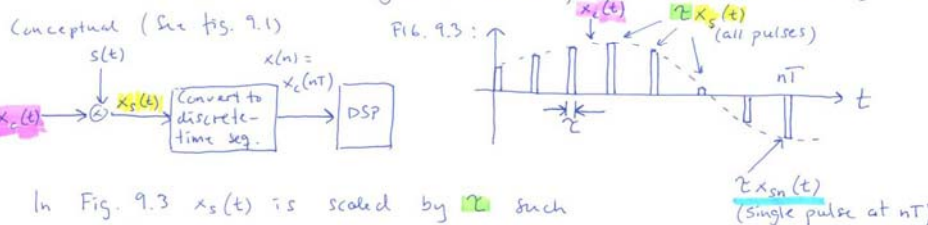 Conceptual (See fig. 9.1)
s(t)
x_c(t)
x_s(t)
Convert to
discrete-
time seq.
x(n) =
x_c(nT)
DSP
FIG. 9.3:
x_c(t)
τ x_s(t)
(all pulses)
nT
t
τ
τ x_sn(t)
(single pulse at nT)
In Fig. 9.3 x_s(t) is scaled by τ such